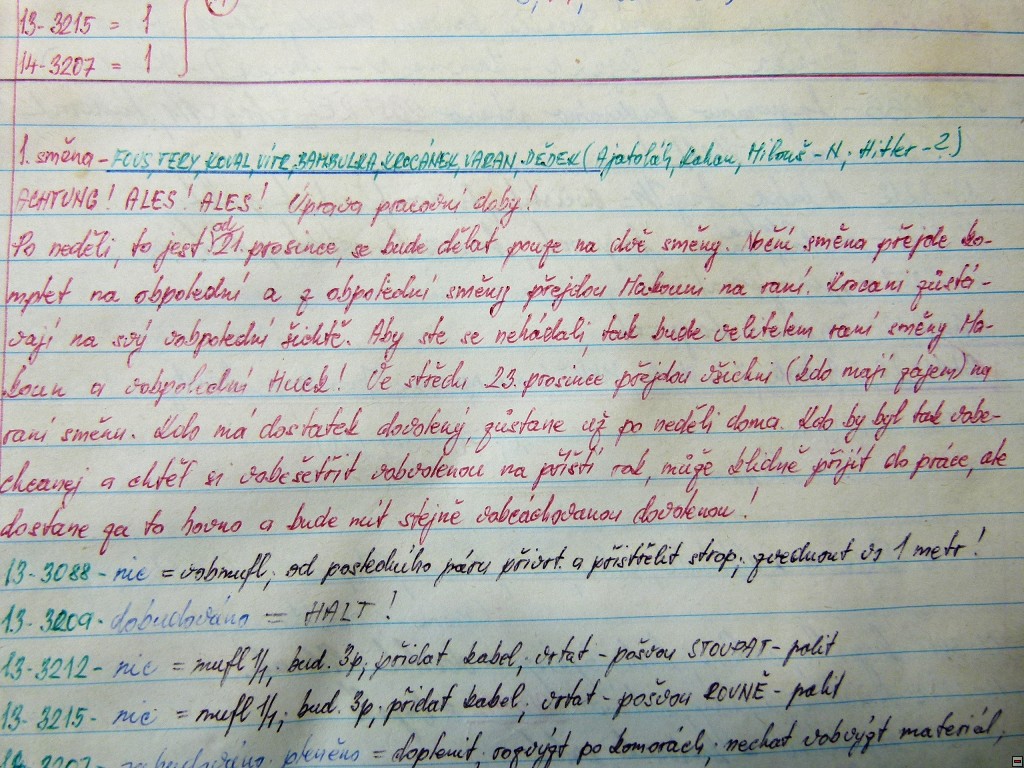 13-3215 = 1
14-3207 = 1
1. směna - FOUS, TERY, KOVAL, VÍTR, BAMBULKA, KROCÁNEK, VARAN, DĚDEK (Ajatoláh, Kahan, Milouš - N; Hitler - ?)
ACHTUNG! ALES! ALES! Úprava pracovní doby!
Po neděli, to jest od 21. prosince, se bude dělat pouze na dvě směny. Noční směna přejde ko-
mplet na obpolední a z obpolední směny přejdou Makouni na raní. Krocani zůstá-
vají na svý vobpolední šichtě. Aby ste se nehádali, tak bude velitelem raní směny Ma-
koun a vobpolední Huck! Ve středu 23. prosince přejdou všichni (kdo mají zájem) na
raní směnu. Kdo má dostatek dovolený, zůstane už po neděli doma. Kdo by byl tak vobe-
chcanej a chtěl si vobešetřit vobvolenou na příští rok, může klidně přijít do práce, ale
dostane za to hovno a bude mít stejně vobcáchovanou dovolenou!
13-3088 - nic = vobmufl; od posledního páru přivrt. a přistřelit strop; zvednout vz 1 metr!
13-3209 - dobudováno = HALT!
13-3212 - nic = mufl 1/1; bud. 3p; přidat kabel; vrtat - počvou STOUPAT - palit
13-3215 - nic = mufl 1/1; bud. 3p; přidat kabel; vrtat - počvou ROVNĚ - palit
pleněno = doplenit; rozvýzt po komorách; nechat vobvýzt materiál;